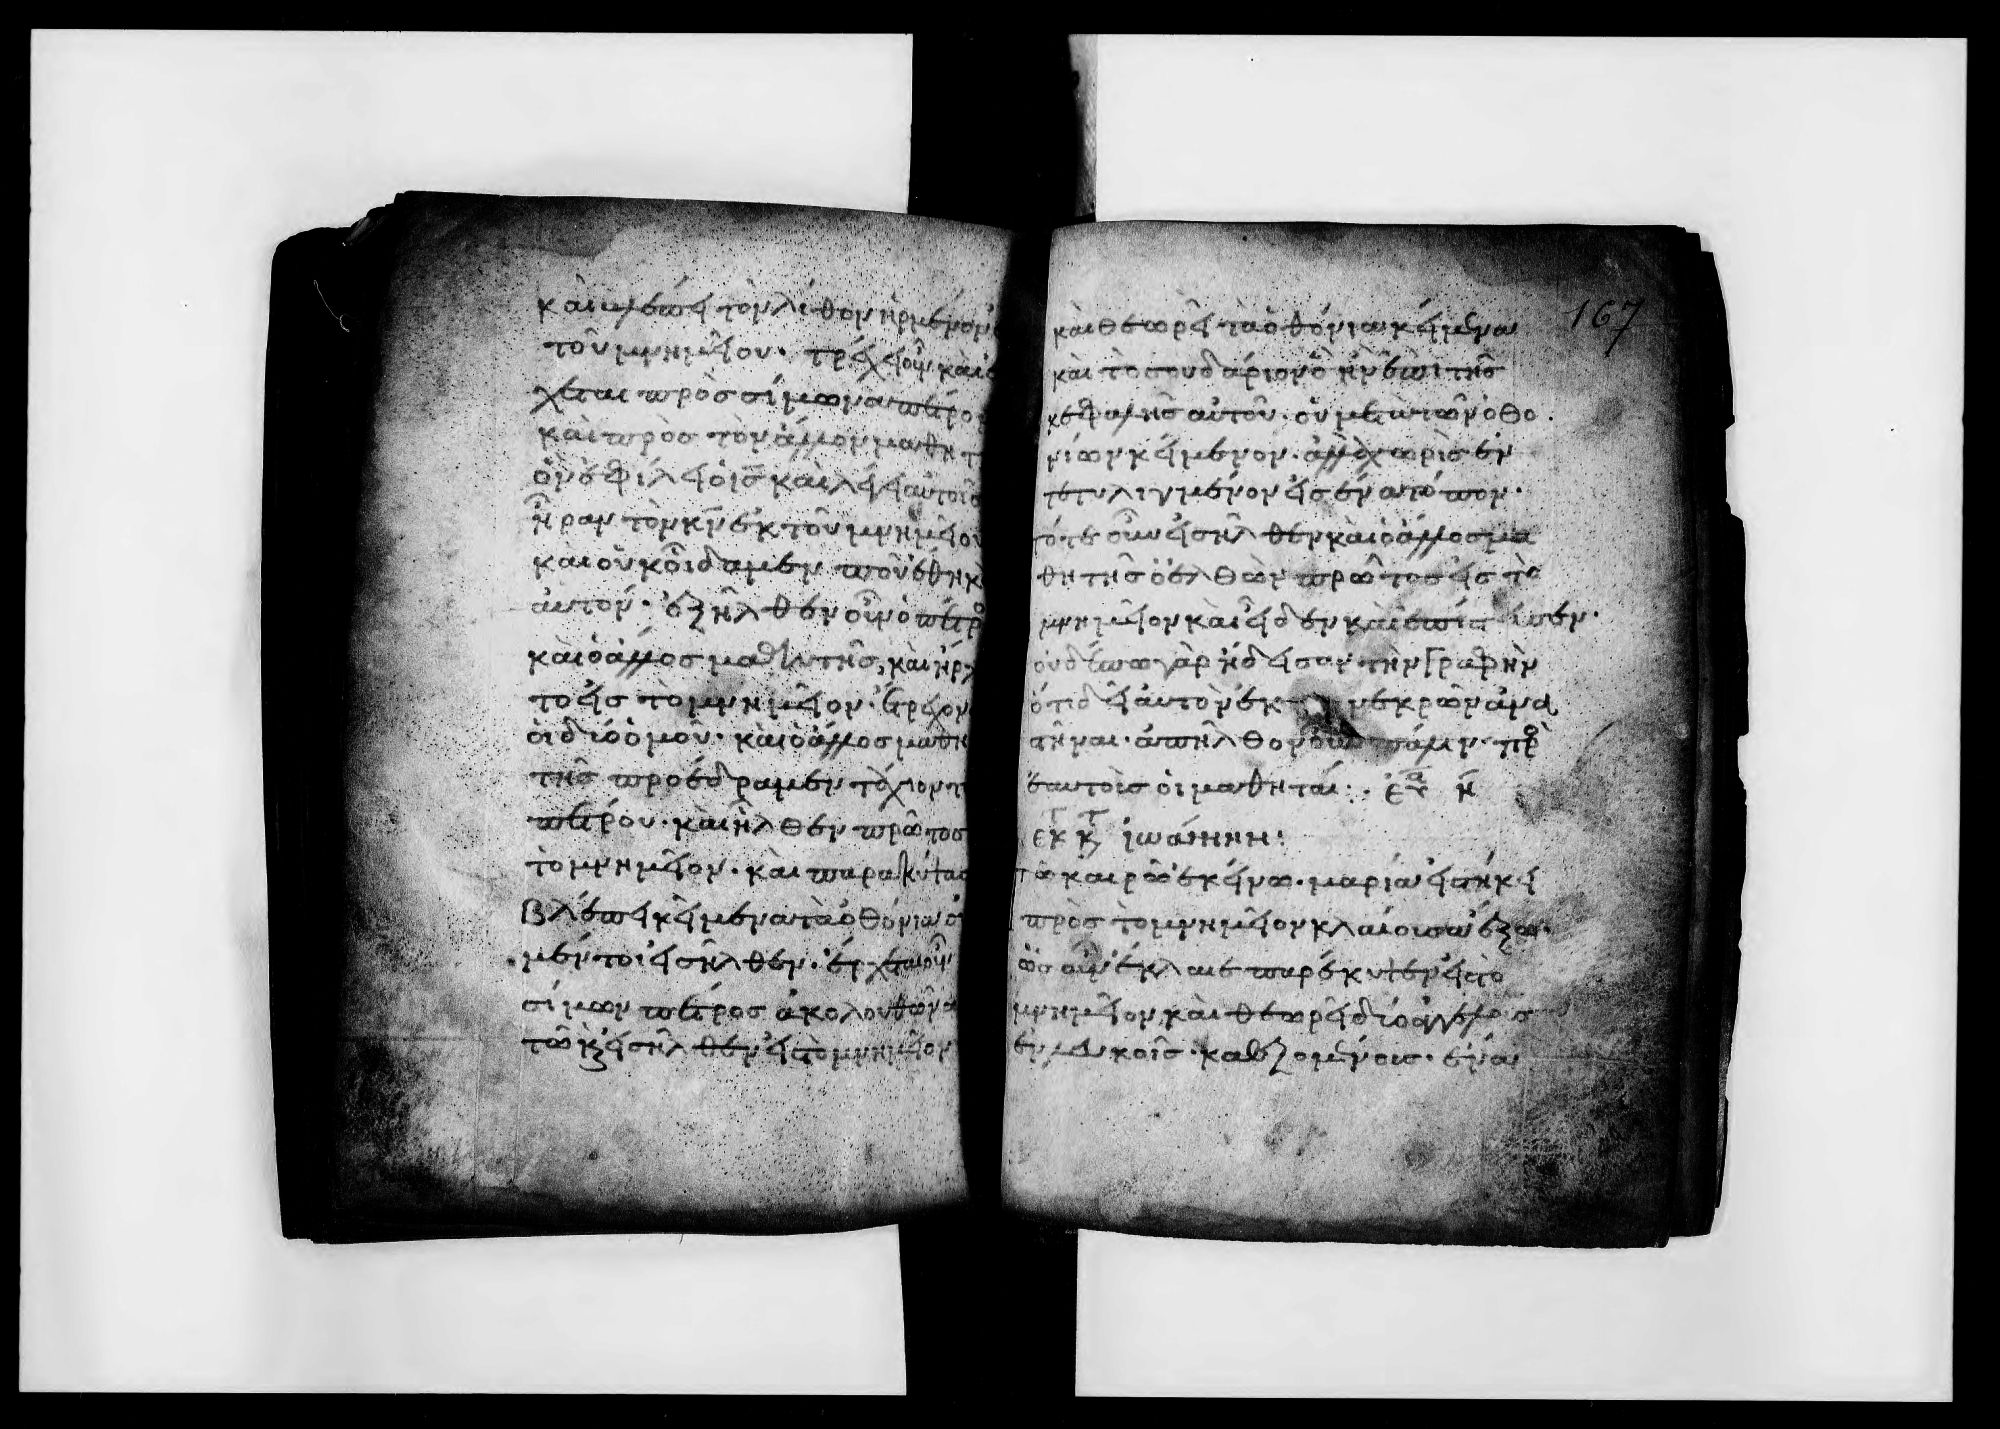 καὶ βλέπει τὸν λίθον ἠρμένον ἐ
τοῦ μνημείου· τρέχει οὖν καὶ ἔ
χεται πρὸς σίμωνα πέτρον
καὶ πρὸς τὸν ἄλλον μαθητ
ὃν ἐφίλει ὁ ις καὶ λέγει αὐτοῖς
ἦραν τὸν κν ἐκ τοῦ μνημείου
καὶ οὐκ οἴδαμεν ποῦ ἔθηκ
αὐτόν· ἐξῆλθεν οὖν ὁ πέτρο
καὶ ὁ ἄλλος μαθητῆς, καὶ ἤρχ
το εἰς τὸ μνημεῖον· ἔτρεχον
οἱ δύο ὁμου· καὶ ὁ ἄλλος μαθη
τῆς προέδραμεν τάχιον τ
πέτρου· καὶ ἦλθεν πρῶτος
τὸ μνημεῖον· καὶ παρακύψας
βλέπει κείμενα τὰ ὀθόνια οὐ
μέντοι εἰσῆλθεν· ἔρχεται οὖν
σίμων πέτρος ἀκολουθῶν α
τῶ κ εἰσῆλθεν εἰς τὸ μνημεῖον
167
καὶ θεωρεῖ τὰ ὀθόνια κείμενα
καὶ τὸ σουδάριον ὃ ἦν ἐπὶ τῆς
κεφαλῆς αὐτοῦ· οὐ μετὰ τῶν ὀθο
νίων κείμενον· ἀλλὰ χωρὶς ἐν
τετυλιγμένον εἰς ἕνα τόπον·
τότε οὖν εἰσῆλθεν καὶ ὁ ἄλλος μα
θητῆς ὁ ἐλθὼν πρῶτος εἰς τὸ
μνημεῖον καὶ εἶδεν καὶ ἐπίστευσεν·
οὐδέπω γὰρ ᾔδεισαν τὴν γραφὴν
ὅτι δεῖ αὐτὸν ἐκ νεκρῶν ἀνασ
τῆναι· ἀπῆλθον οὖν πάλιν· πρὸ
ἑαυτοὺς οἱ μαθηταί: εὐα η
ἐκ τ κτ ἰωάννην:
τῶ καιρῶ ἐκείνω· μαρία εἱστήκει
πρὸς τὸ μνημεῖον κλαίουσα ἔξω·
ὡς οὖν ἔκλαιε παρέκυψεν εἰς τὸ
μνημεῖον καὶ θεωρεῖ δύο ἀγγέλους
ἐν λευκοῖς· καθεζομένους· ἕνα